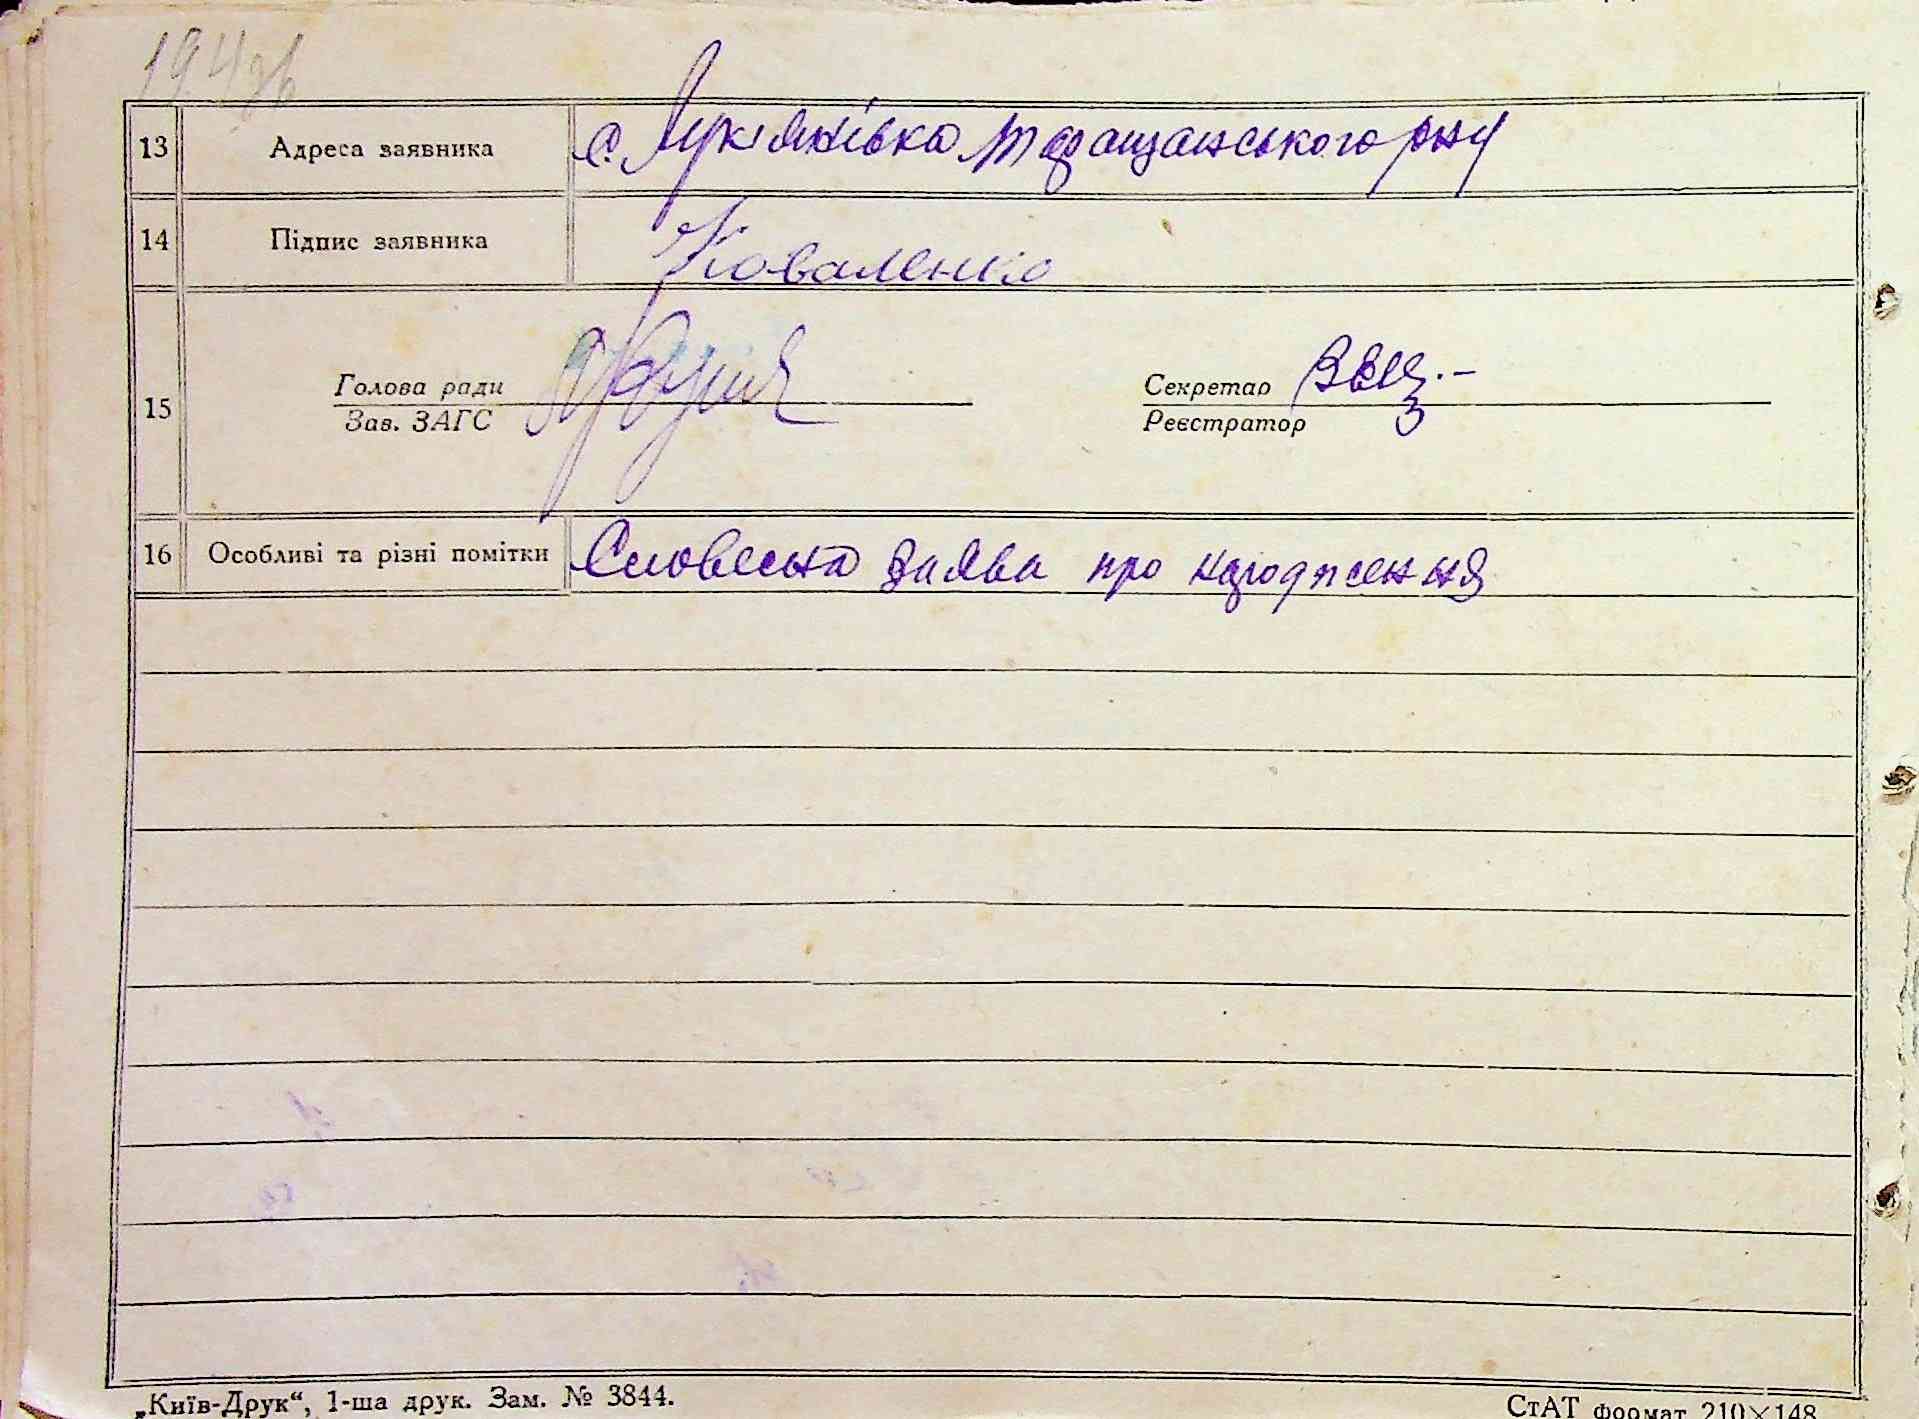 13 Адреса заявника с. Лукянівка Таращанського рну
14 Підпис заявника Коваленко
Голова ради Секретар
15
Зав. ЗАГС Реєстратор
16 Особливі та різні помітки Словесна заява про народження
„Київ-Друк“, 1-ша друк. Зам. № 3844. СтАТ формат 210×148